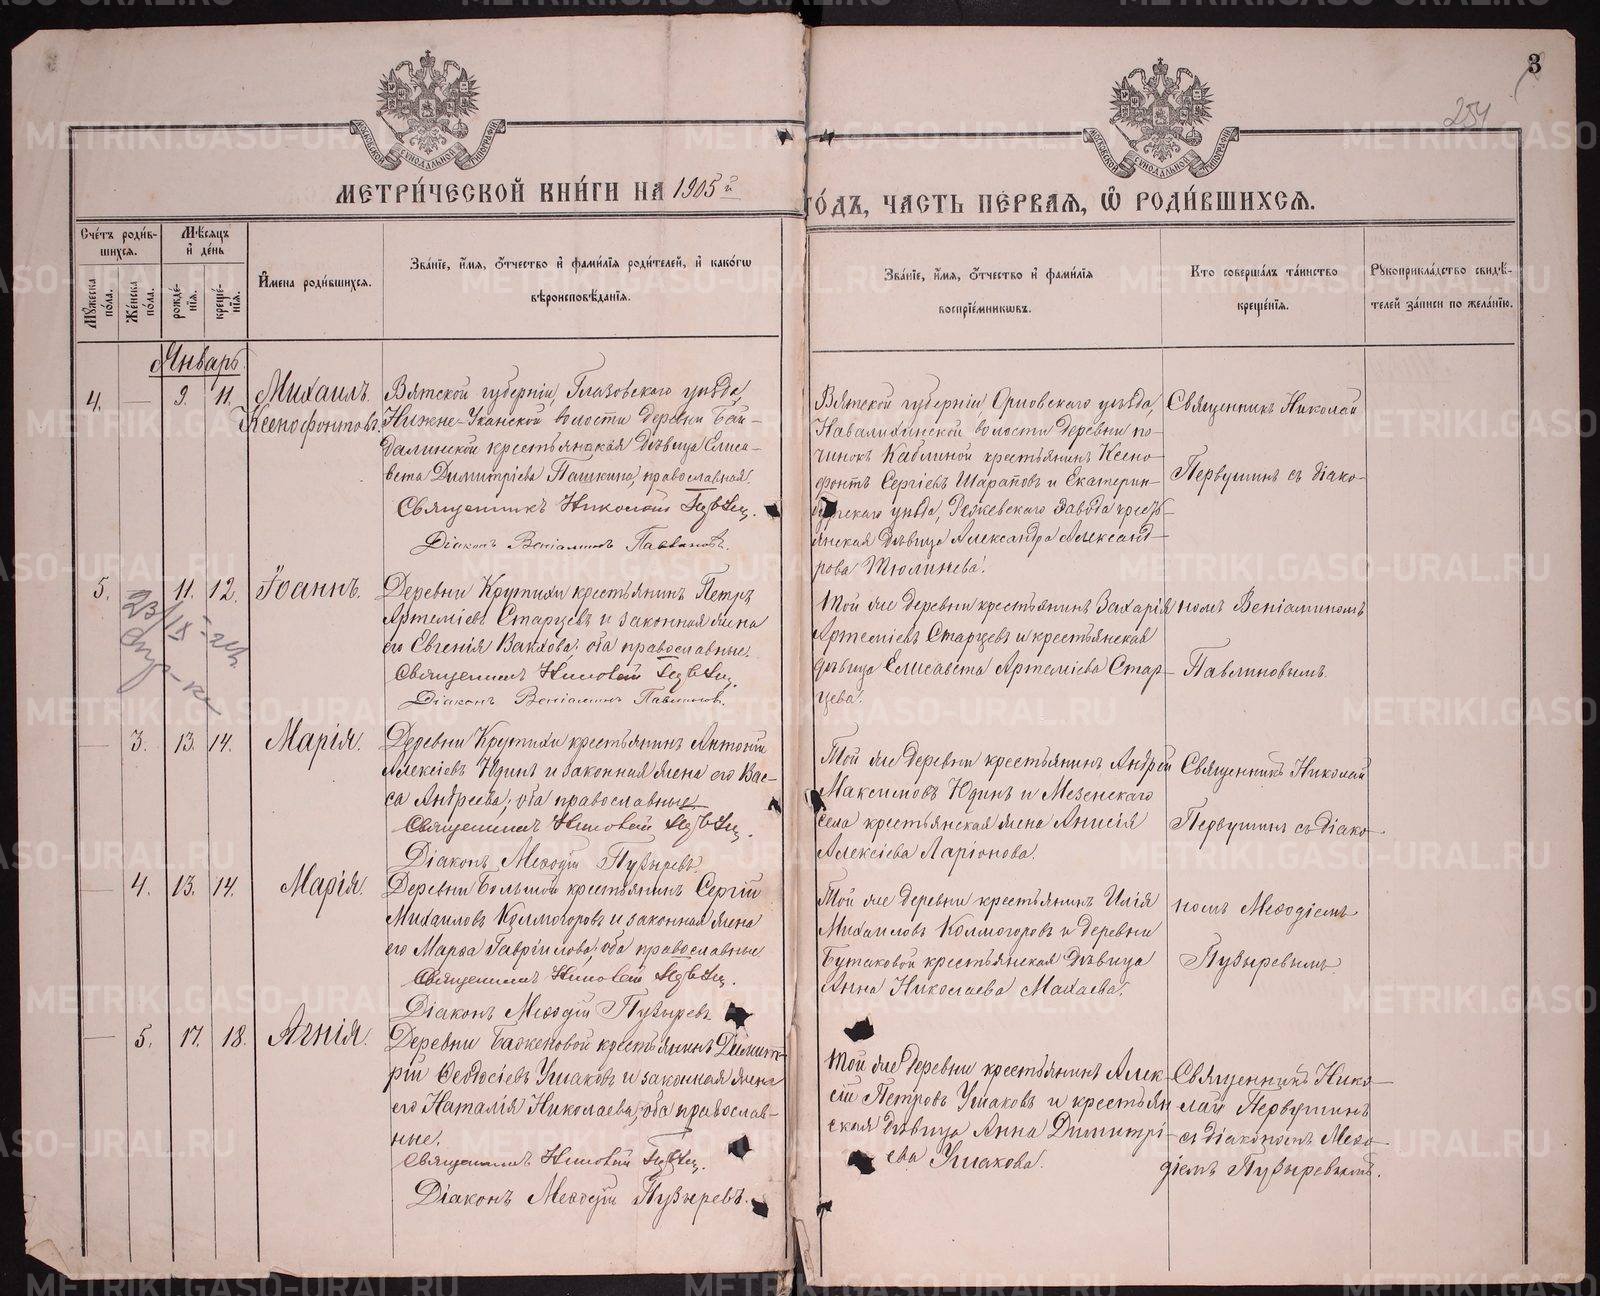 3
251
МОСКОВСКОЙ СѴНОДАЛЬНОЙ ТИПОГРАФІИ
МОСКОВСКОЙ СѴНОДАЛЬНОЙ ТИПОГРАФІИ
МЕТРИ́ЧЕСКОЙ КНИ́ГИ НА 1905 й
ГО́ДЪ, ЧАСТЬ ПЕ́РВАЯ, Ѽ РОДИ́ВШИХСЯ.
Сче́тъ роди́в-
шихся.
Му́жеска
по́ла.
Же́нска
по́ла.
Мѣ́сяцъ
и҆ де́нь
рожде́-
нїя.
креще́-
нїя.
И҆мена роди́вшихся.
Зва́нїе, и҆́мя, ѻ҆́тчество и҆ фами́лїя роди́телей, и҆ како́гѡ
вѣроисповѣ́данїя.
Зва́нїе, и҆́мя, ѻ҆́тчество и҆ фами́лїя
воспрїе́мникѡвъ.
Кто соверша́лъ та́инство
креще́нїя.
Рꙋкоприкла́дство свидѣ́-
телей за́писи по жела́нїю.
Январь
4. — 9. 11. Михаилъ
Ксенофонтовъ.
Вятской губерніи, Глазовскаго уѣзда,
Нижне-Уканской волости деревни Бай-
далинской крестьянская дѣвица Елиса-
вета Димитріева Пашкина, православная.
Священникъ Николай Первушинъ.
Діаконъ Веніаминъ Павлиновъ.
Вятской губерніи, Орловскаго уѣзда,
Навалихинской волости деревни по-
чинокъ Каблиной крестьянинъ Ксено-
фонтъ Сергіевъ Шараповъ и Екатерин-
бургскаго уѣзда, Режевскаго завода кресть-
янская дѣвица Александра Александ-
рова Тюлинева.
Священникъ Николай
Первушинъ съ діако-
5. 11. 12. Іоаннъ.
23/IX
Деревни Крутихи крестьянинъ Петръ
Артеміевъ Старцевъ и законная жена
его Евгенія Вакхова; оба православные.
Священникъ Николай Первушинъ.
Діаконъ Веніаминъ Павлиновъ.
Той же деревни крестьянинъ Захарія
Артеміевъ Старцевъ и крестьянская
дѣвица Елисавета Артеміева Стар-
цева.
номъ Веніаминомъ
Павлиновымъ.
— 3. 13. 14. Марія.
Деревни Крутихи крестьянинъ Антоній
Алексіевъ Юдинъ и законная жена его Вас-
са Андреева; оба православные
Священникъ Николай Первушинъ.
Діаконъ Меѳодій Пузыревъ.
Той же деревни крестьянинъ Андрей
Максимовъ Юдинъ и Мезенскаго
села крестьянская жена Анисія
Алексіева Ларіонова.
Священникъ Николай
Первушинъ съ діако-
— 4. 13. 14. Марія.
Деревни Большой крестьянинъ Сергій
Михаиловъ Колмогоровъ и законная жена
его Марѳа Гавріилова; оба православные
Священникъ Николай Первушинъ.
Діаконъ Меѳодій Пузыревъ.
Той же деревни крестьянинъ Илія
Михаиловъ Колмогоровъ и деревни
Бутаковой крестьянская дѣвица
Анна Николаева Махаева.
номъ Меѳодіемъ
Пузыревымъ.
— 5. 17. 18. Агнія.
Деревни Баженовой крестьянинъ Димит-
рій Ѳеодосіевъ Ушаковъ и законная жена
его Наталія Николаева; оба православ-
ные.
Священникъ Николай Первушинъ.
Діаконъ Меѳодій Пузыревъ.
Той же деревни крестьянинъ Алек-
сій Петровъ Ушаковъ и крестьян-
ская дѣвица Анна Димитрі-
ева Ушакова.
Священникъ Нико-
лай Первушинъ
съ діакономъ Меѳо-
діемъ Пузыревымъ.
METRIKI.GASO-URAL.RU